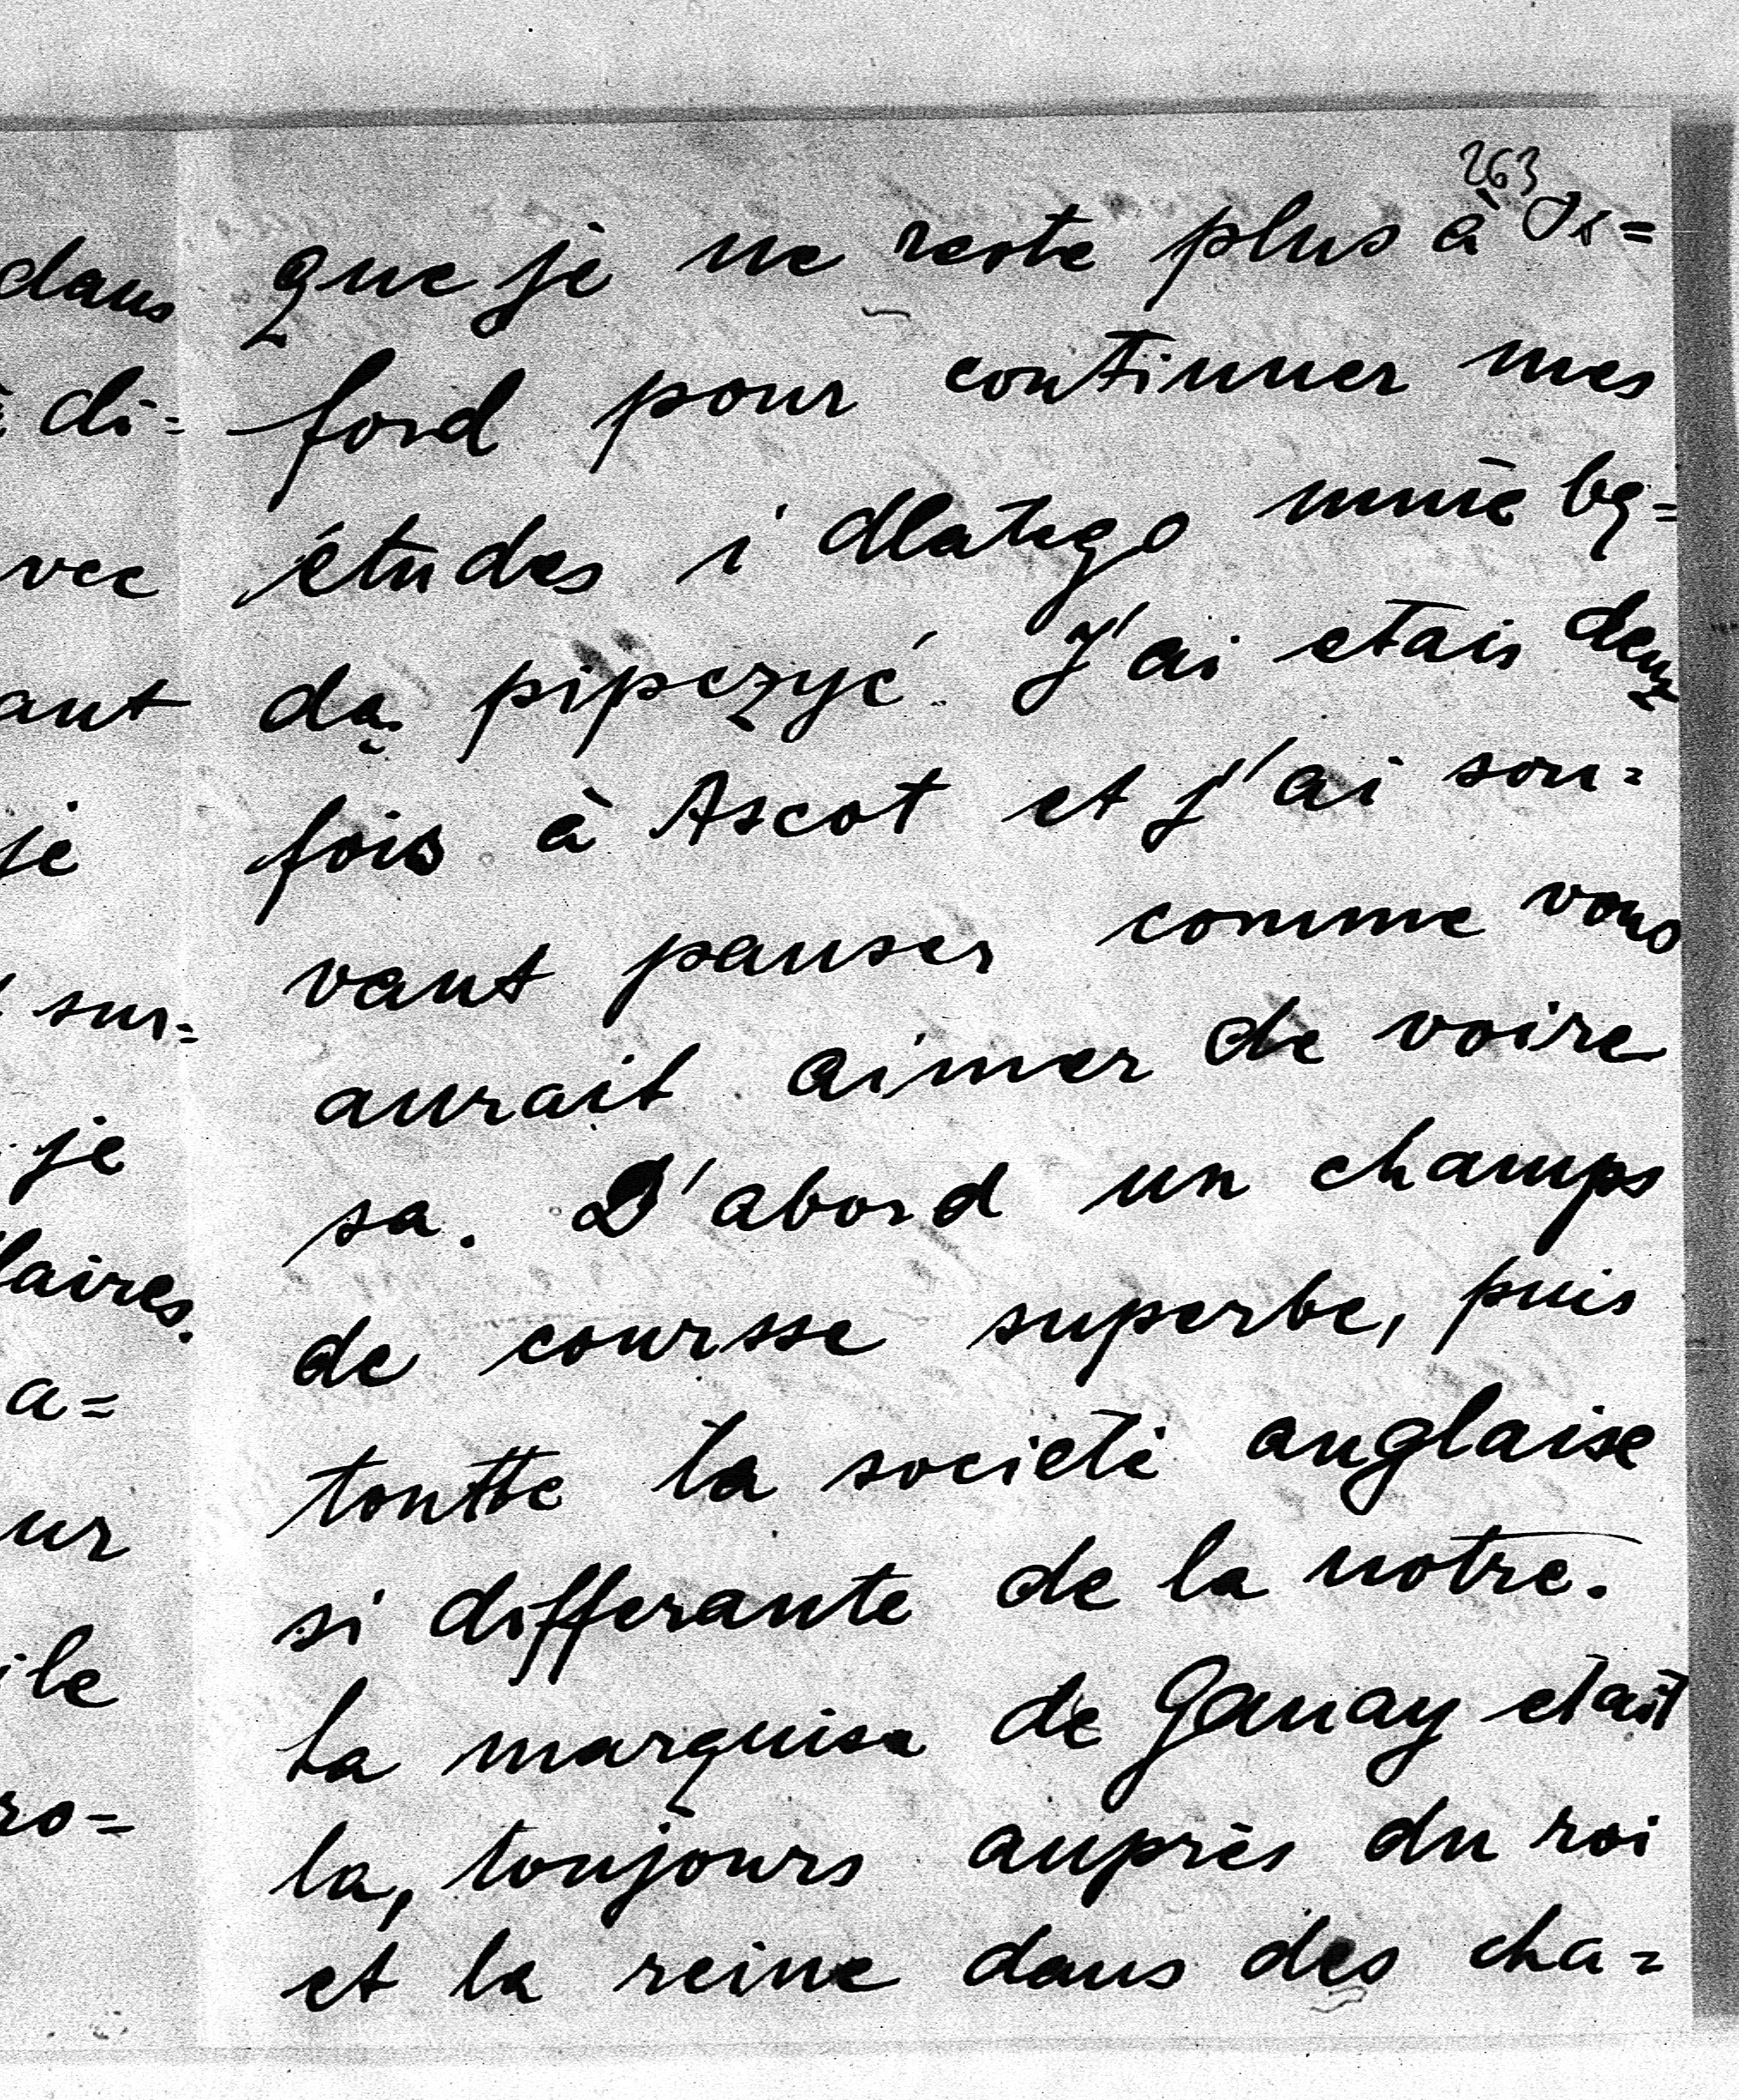 263
que je ne reste plus à Is=
ford pour continuer mes
études i dlatego mnie bę=
dą pipczyć. J'ai etais deux
fois à Ascot et j'ai sou=
vant panser comme vous
aurait aimer de voire
sa. D'abord un champs
de coursse superbe, puis
toutte la societé anglaise
si differante de la notre.
La marquise de Ganay etait
la, toujours auprès du roi
et la reine dans des cha=
dans
di=
vec
ant
je
sur=
je
laires.
a=
ur
ile
ro=